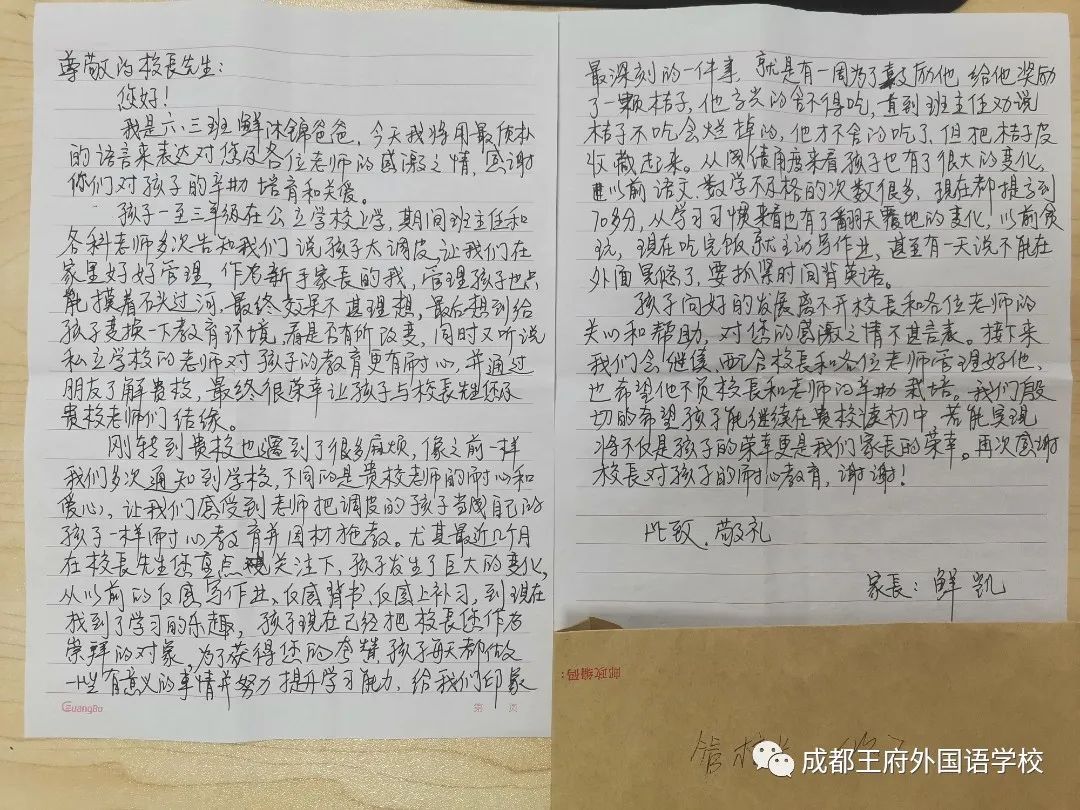 尊敬的校長先生：
您好！
我是六.三班鲜沐锦爸爸，今天我将用最质朴
的语言来表达对您及各位老师的感激之情，感谢
你们对孩子的辛勤培育和关爱。
孩子一至三年级在公立学校上学，期间班主任和
各科老师多次告知我们说孩子太调皮，让我们在
家里好好管理，作为新手家長的我，管理孩子也只
能摸着石头过河，最终效果不甚理想，最后想到给
孩子变换一下教育环境，看是否有所改变，同时又听说
私立学校的老师对孩子的教育更有耐心，并通过
朋友了解贵校，最终很荣幸让孩子与校長先生您及
贵校老师们结缘。
刚转到贵校也遇到了很多麻烦，像之前一样
我们多次通知到学校，不同的是贵校老师的耐心和
爱心，让我们感受到老师把调皮的孩子当成自己的
孩子一样耐心教育并因材施教。尤其最近几个月
在校長先生您重点关注下，孩子发生了巨大的变化，
从以前的反感写作业、反感背书、反感上补习，到现在
找到了学习的乐趣，孩子现在已经把校長您作为
崇拜的对象，为了获得您的夸赞，孩子每天都做
一些有意义的事情并努力提升学习能力，给我们印象
GuangBo
第 页
最深刻的一件事，就是有一周为了鼓励他，给他奖励
了一颗桔子，他高兴的舍不得吃，直到班主任劝说
桔子不吃会烂掉的，他才不舍的吃了，但把桔子皮
收藏起来。从成绩角度来看孩子也有了很大的变化，
以前语文、数学不及格的次数很多，现在都提高到
70多分，从学习习惯来看也有了翻天覆地的变化，以前贪
玩，现在吃完饭就主动写作业，甚至有一天说不能在
外面晃悠了，要抓紧时间背英语。
孩子向好的发展离不开校長和各位老师的
关心和帮助，对您的感激之情不甚言表。接下来
我们会继续配合校長和各位老师管理好他，
也希望他不负校長和老师的辛勤栽培。我们殷
切的希望孩子能继续在贵校读初中，若能实现
将不仅是孩子的荣幸更是我们家長的荣幸。再次感谢
校長对孩子的耐心教育，谢谢！
此致.敬礼
家長：鲜凯
邮政编码：
成都王府外国语学校